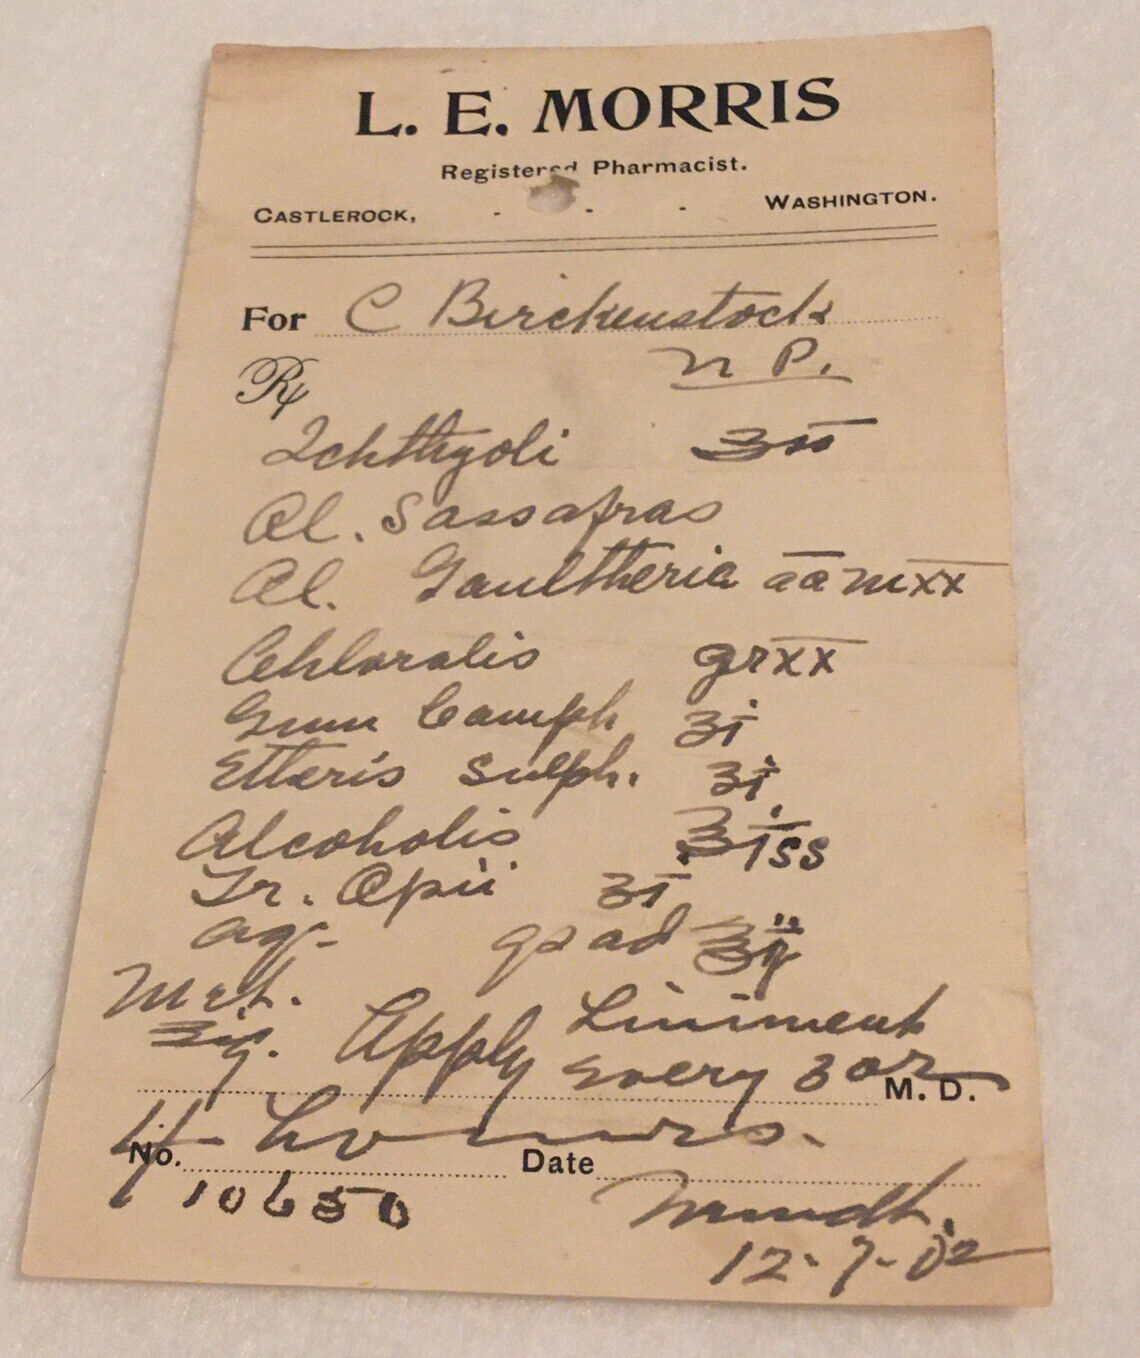 L. E. MORRIS
Registered Pharmacist.
CASTLEROCK, - - - WASHINGTON.
For C Birckenstock
Rx n P.
Ichthyoli ʒss
Ol. Sassafras
Ol. Gaultheria aa mxx
Chloralis grxx
Gum Camph ʒi
Etheris Sulph. ʒi
Alcoholis ℥iss
Tr. Opii ʒi
aq. qs ad ℥ii
Mft. Liniment
Sig. Apply every 3 or
M. D.
4 hours.
No. 10650 Date
12-7-02